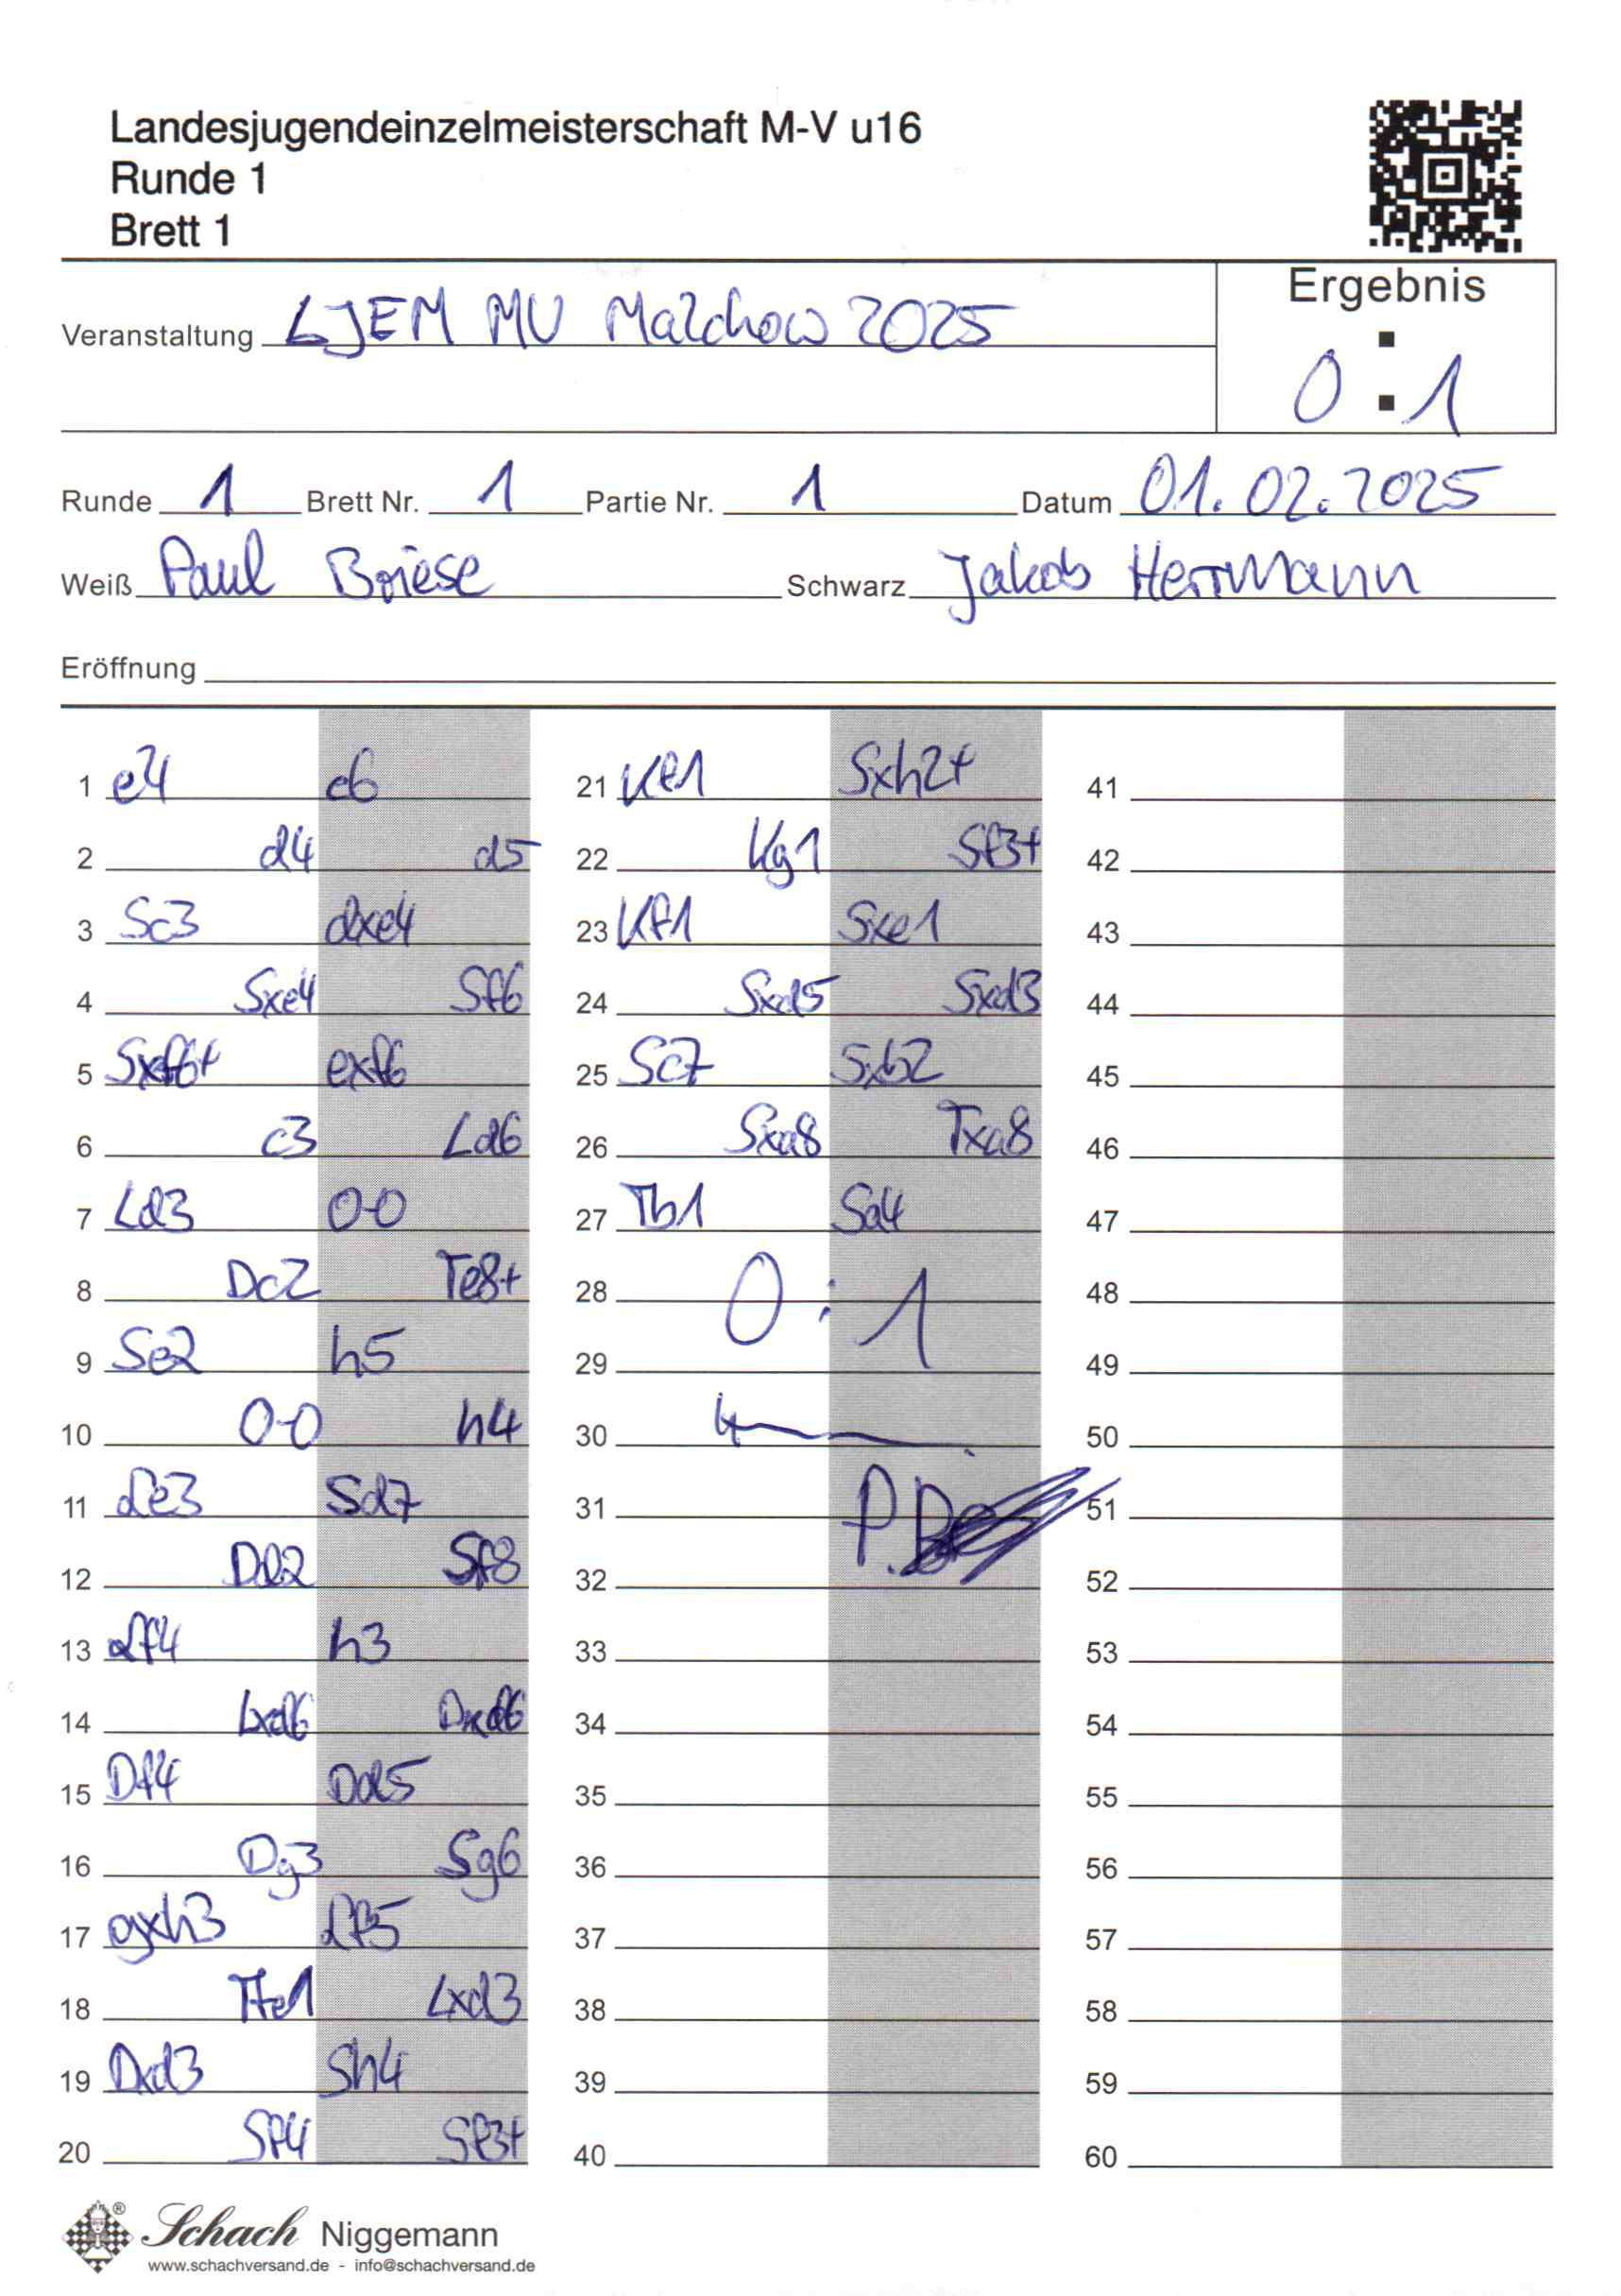 Landesjugendeinzelmeisterschaft M-V u16
Runde 1
Brett 1
Ergebnis
Veranstaltung LJEM MV Malchow 2025
0 : 1
Runde 1 Brett Nr. 1 Partie Nr. 1 Datum 01.02.2025
Weiß Paul Briese Schwarz Jakob Herrmann
Eröffnung
1 e4 c6
2 d4 d5
3 Sc3 dxe4
4 Sxe4 Sf6
5 Sxf6+ exf6
6 c3 Ld6
7 Ld3 0-0
8 Dc2 Te8+
9 Se2 h5
10 0-0 h4
11 Le3 Sd7
12 Dd2 Sf8
13 Lf4 h3
14 Lxd6 Dxd6
15 Df4 Dd5
16 Dg3 Sg6
17 gxh3 Lf5
18 Tfe1 Lxd3
19 Dxd3 Sh4
20 Sf4 Sf3+
21 Kf1 Sxh2+
22 Kg1 Sf3+
23 Kf1 Sxe1
24 Sxd5 Sxd3
25 Sc7 Sxb2
26 Sxa8 Txa8
27 Tb1 Sa4
28 0 : 1
29
30
31 P.
32
33
34
35
36
37
38
39
40
41
42
43
44
45
46
47
48
49
50
51
52
53
54
55
56
57
58
59
60
Schach Niggemann
www.schachversand.de - info@schachversand.de